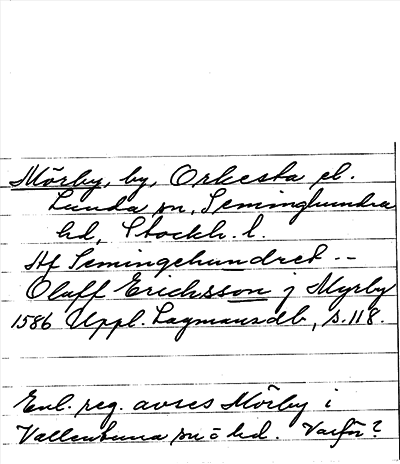 Mörby, by, Orkesta el.
Lunda sn, Seminghundra
hd, Stockh. l.
Aff Semingehundret --
Oluff Erichsson j Myrby
1586 Uppl. Lagmansdb, s. 118.
Enl. reg. avses Mörby i
Vallentuna sn o hd. Varför?